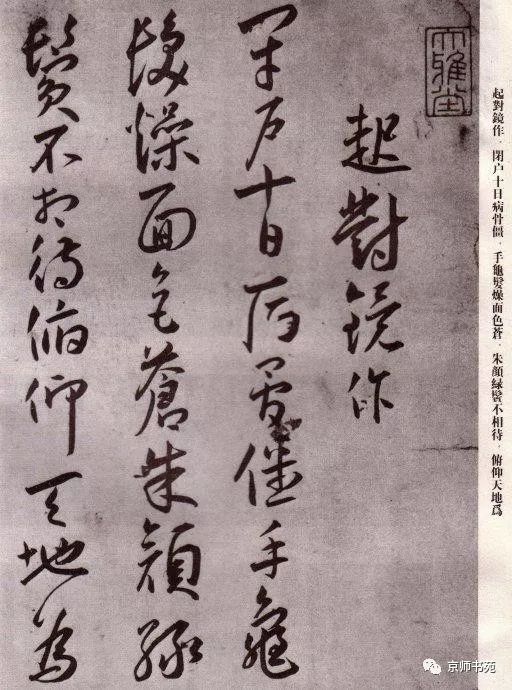 大雅堂
起對鏡作
閉户十日病骨僵手龜
髮燥面色蒼朱顔綠
鬢不相待俯仰天地為
起對鏡作．閉户十日病骨僵．手龜髮燥面色蒼．朱顔緑鬢不相待．俯仰天地爲
京师书苑